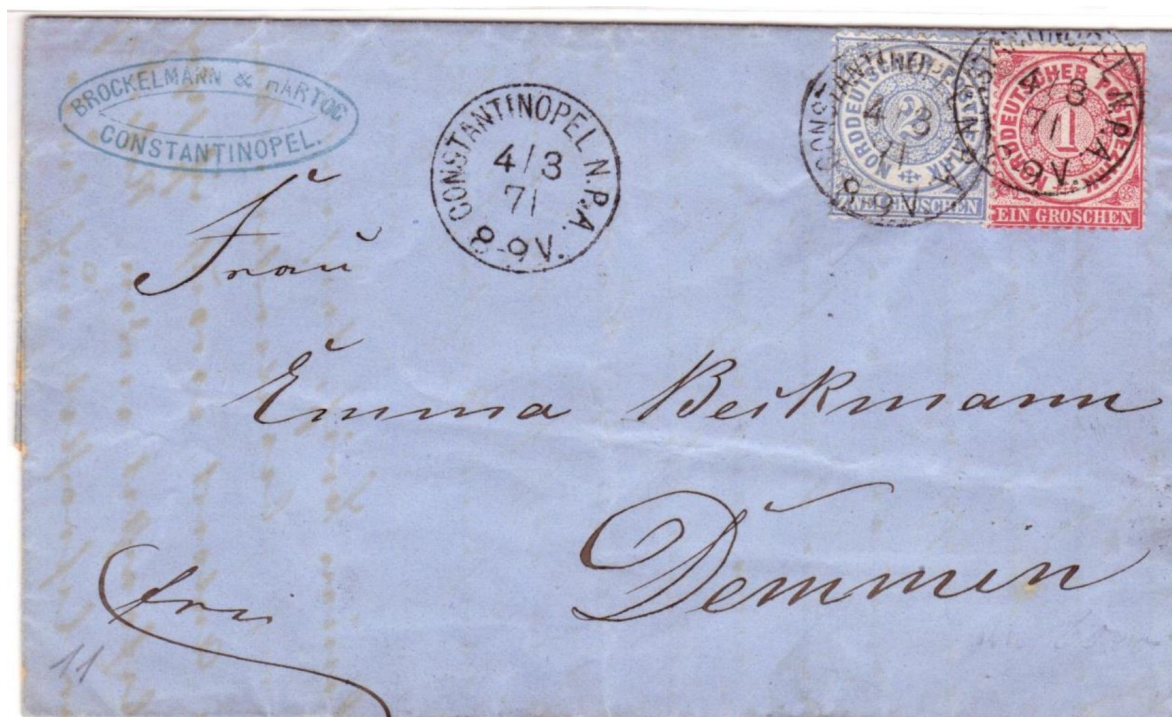 BROCKELMANN & HARTOG
CONSTANTINOPEL.
CONSTANTINOPEL N.P.A.
4/3
71
8-9V.
CONSTANTINOPEL N.P.A.
4/3
71
8-9V.
NORDDEUTSCHER POSTBEZIRK
2
ZWEI GROSCHEN
CONSTANTINOPEL N.P.A.
4/3
71
8-9V.
NORDDEUTSCHER POSTBEZIRK
1
EIN GROSCHEN
Frau
Emma Beckmann
Demmin
frei
11